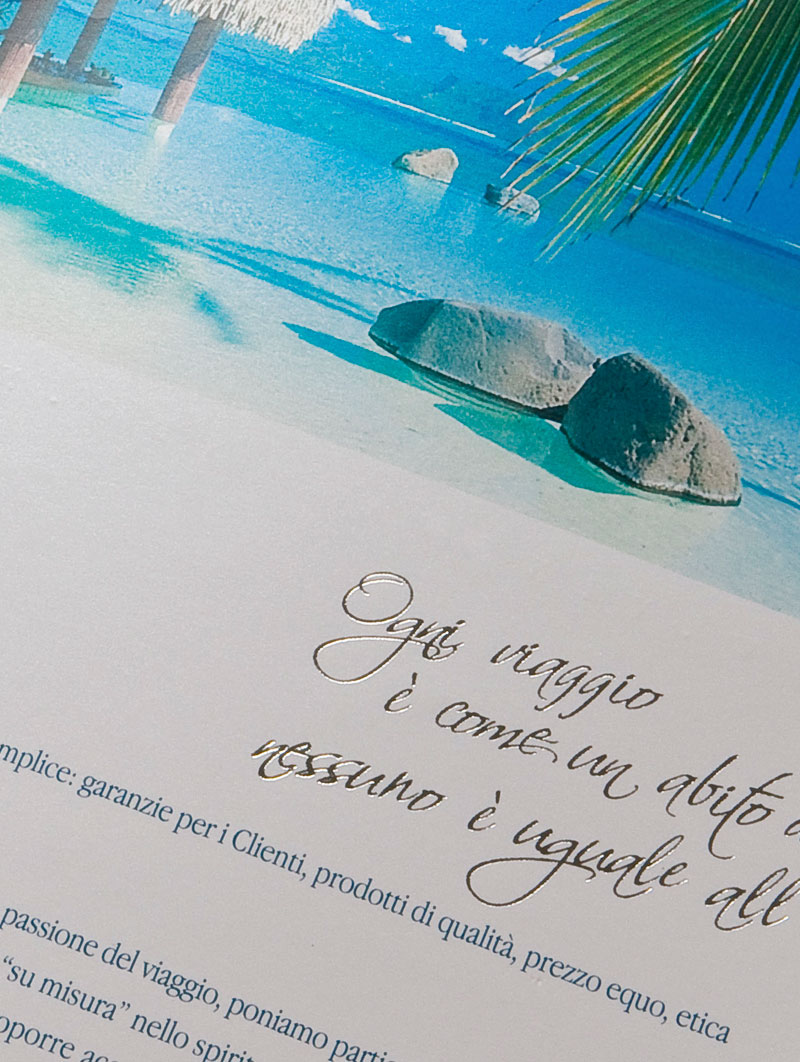 Ogni viaggio
è come un abito
nessuno è uguale all
mplice: garanzie per i Clienti, prodotti di qualità, prezzo equo, etica
passione del viaggio, poniamo partic
“su misura” nello spirit
oporre acc